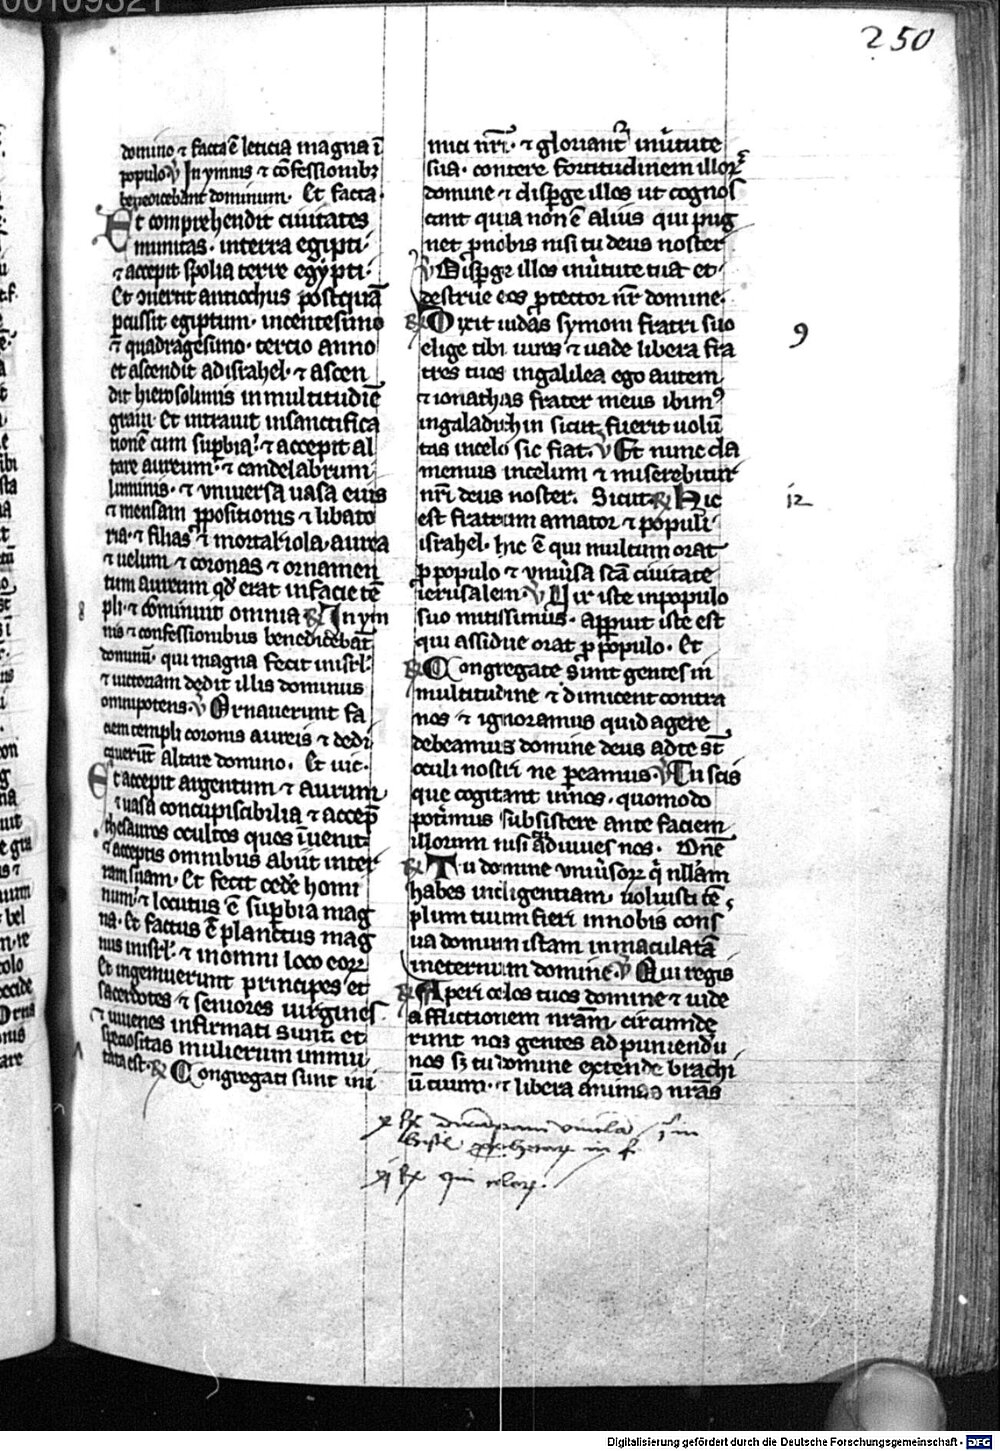 250
domino ⁊ facta ē leticia magna ī
populo. ℣ In ymnis ⁊ cōfessionibꝫ
benedicebant dominum. Et facta.
Et comprehendit ciuitates
munitas. interra egipti.
⁊ accepit spolia terre egypti.
Et ꝯuertit antiochus postquā
ꝑcussit egiptum. incentesimo
⁊ quadragesimo. tercio anno
et ascendit adisrahel. ⁊ ascen
dit hierosolimis in multitudiē
graui. Et intrauit insanctifica
tionē cum suꝑbia. ⁊ accepit al
tare aureum. ⁊ candelabrum
luminis. ⁊ vniuersa uasa eius
⁊ mensam ꝓpositionis ⁊ libato
ria. ⁊ filias ⁊ mortariola. aurea
⁊ uelum ⁊ coronas ⁊ ornamen
tum aureum qđ erat infacie tē
pli. ⁊ cōminuit omnia ℟ In ym
nis ⁊ confessionibus benedicebāt
dominū. qui magna fecit inisrl.
⁊ uictoriam dedit illis dominus
omnipotens. ℣ Ornauerunt fa
ciem templi coronis aureis ⁊ dedi
cauerūt altare domino. Et uic.
Et accepit argentum ⁊ aurum
⁊ uasa concupiscibilia ⁊ accep̄
thesauros occultos quos īuenit
⁊ acceptis omnibus abiit inter
ram suam. Et fecit cedē homi
num. ⁊ locutus ē suꝑbia mag
na. Et factus ē planctus mag
nus inisrl. ⁊ inomni loco eoꝝ
Et ingemuerunt principes et
sacerdotes ⁊ seniores uirgines
⁊ iuuenes infirmati sunt et
speciositas mulierum inmu
tata est. ℟ Congregati sunt ini
mici nr̄i. ⁊ gloriantᷣ inūtute
sua. contere fortitudinem illoꝝ
domine ⁊ disꝑge illos ut cognos
cant quia non ē alius qui pug
net ꝓnobis nisi tu deus noster
℣ Disꝑge illos inūtute tua et
destrue eos ꝓtector nr̄ domine.
℟ Dixit iudas symoni fratri suo
9
elige tibi uiros ⁊ uade libera fra
tres tuos ingalilea ego autem
⁊ ionathas frater meus ibimꝰ
ingaladithin sicut fuerit uolū
tas incelo sic fiat. ℣ Et nunc cla
memus incelum ⁊ miserebitur
nr̄i deus noster. Sicut ℟ Hic
12
est fratrum amator ⁊ populi
israhel. hic ē qui multum orat
ꝓ populo ⁊ vniūsa scā ciuitate
ierusalem. ℣ Uir iste inpopulo
suo mitissimus. apparuit iste est
qui assidue orat ꝓ populo. Et
℟ Congregate sunt gentes in
multitudine ⁊ dimicent contra
nos ⁊ ignoramus quid agere
debeamus domine deus adte st̄
oculi nostri ne ꝑeamus. ℣ Tu scis
que cogitant innos. quomodo
poterimus subsistere ante faciem
illorum nisi adiuues nos. Dn̄e
℟ Tu domine vniūsoꝝ qͥ nllām
habes indigentiam. uoluisti tē
plum tuum fieri innobis cons
ua domum istam immaculatā
ineternum domine. ℣ Qui regis
℟ Aperi celos tuos domine ⁊ uide
afflictionem nrām. circumde
runt nos gentes ad puniendū
nos sꝫ tu domine extende brachi
ū tuum. ⁊ libera animas nrās
Digitalisierung gefördert durch die Deutsche Forschungsgemeinschaft - DFG